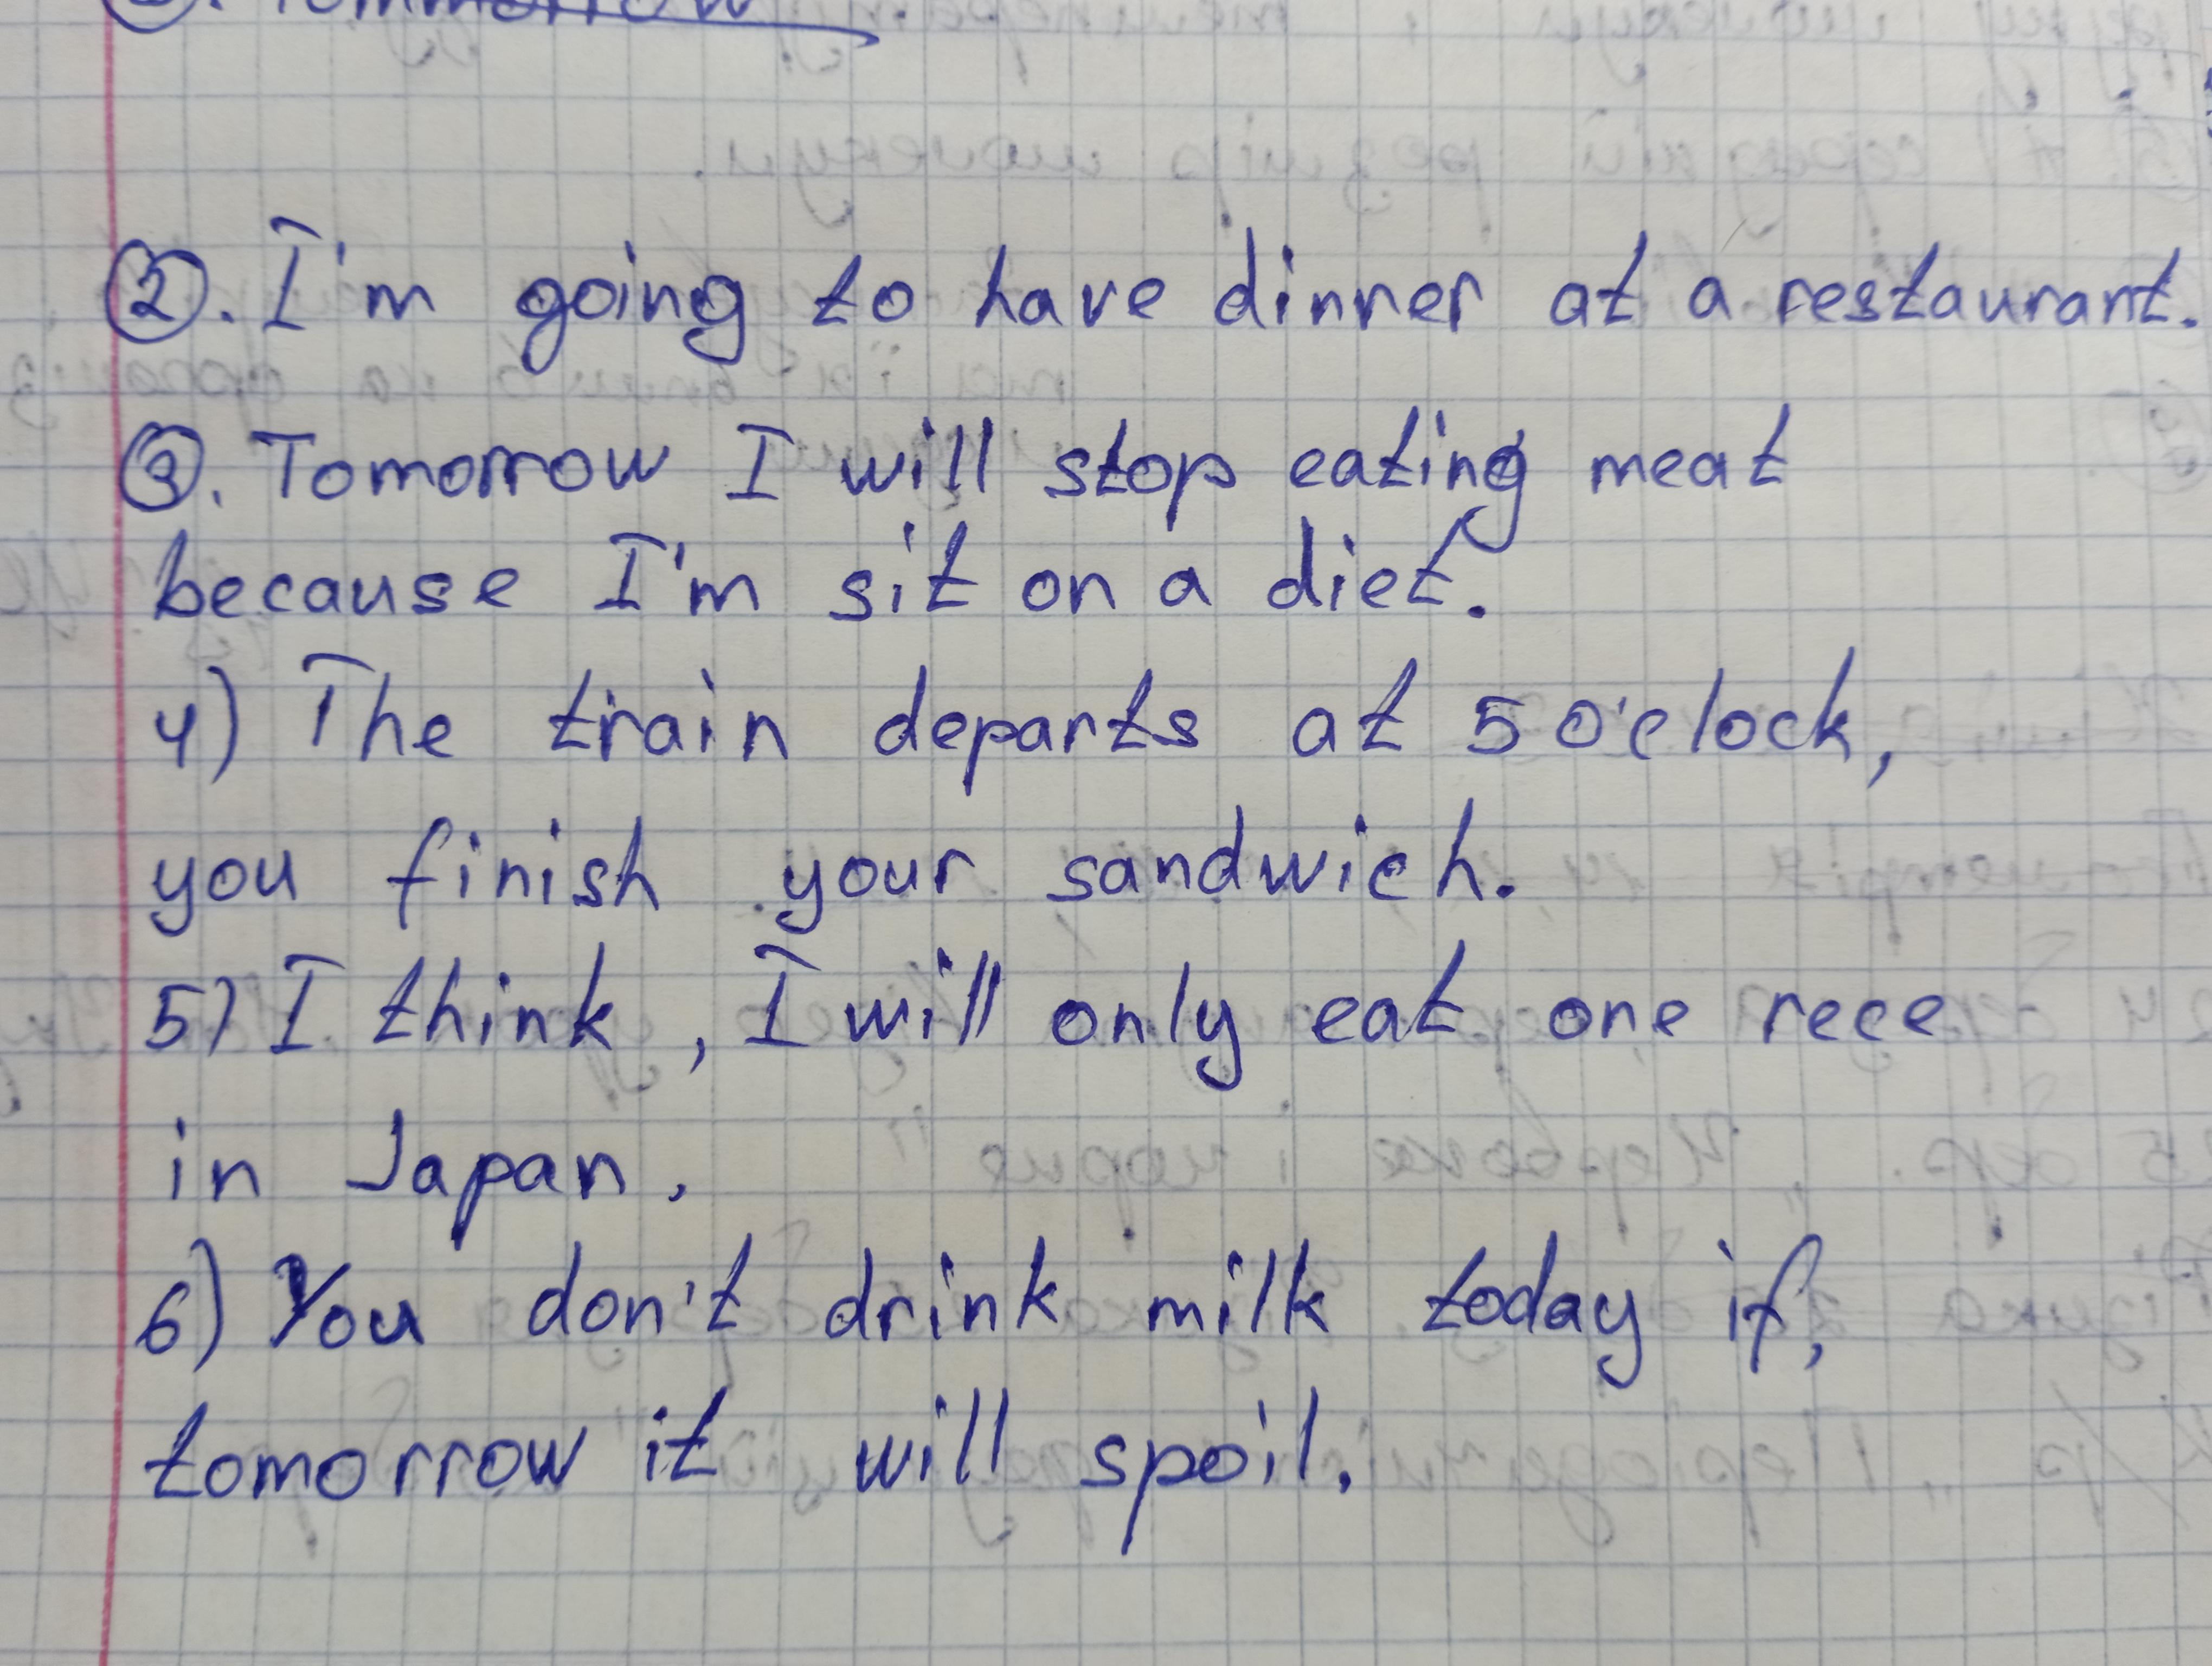 ②. I'm going to have dinner at a restaurant.
③. Tomorrow I will stop eating meat
because I'm sit on a diet.
4) The train departs at 5 o'clock,
you finish your sandwich.
5) I think, I will only eat one rece
in Japan.
6) You don't drink milk today if,
tomorrow it will spoil.